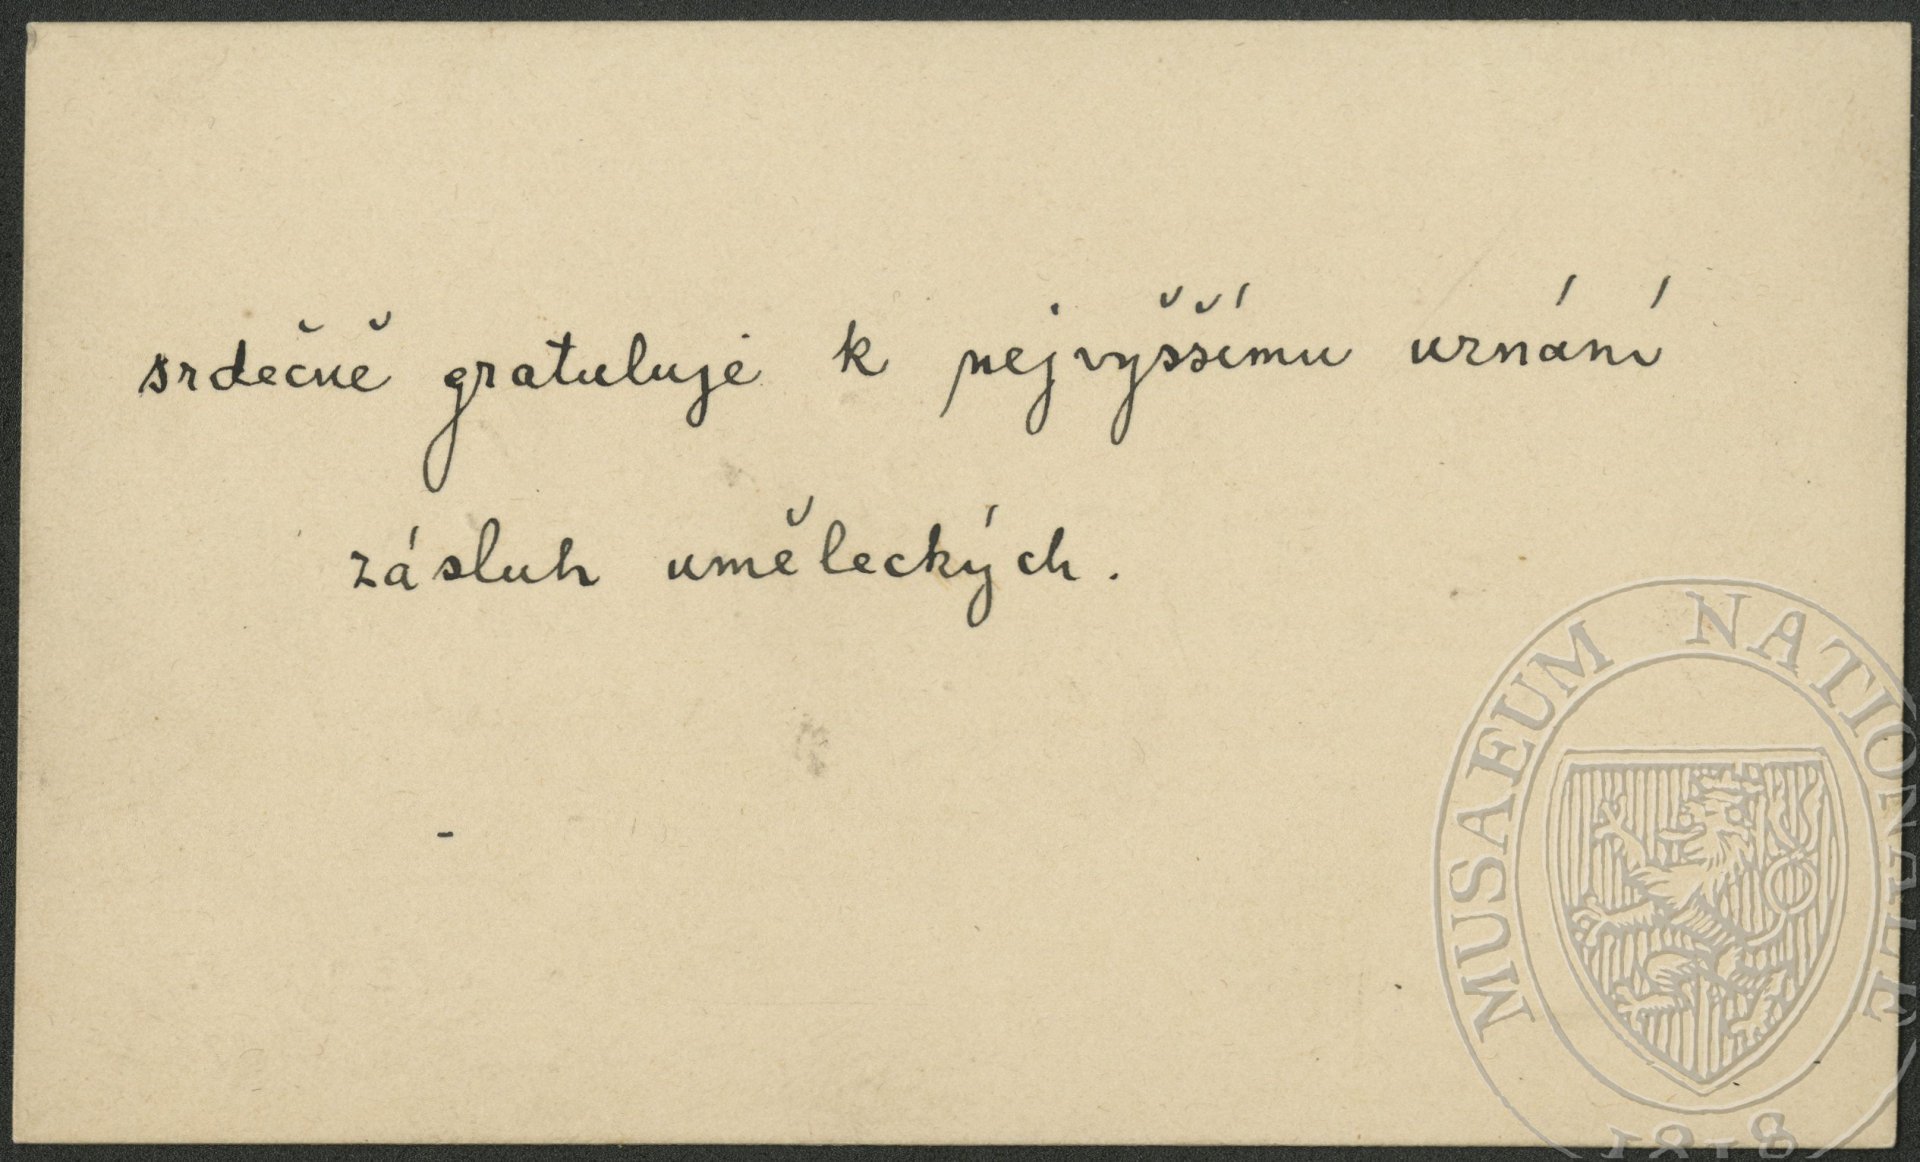 srdečně gratuluje k nejvyššímu uznání
zásluh uměleckých.
MUSAEUM NATIONALE
1818